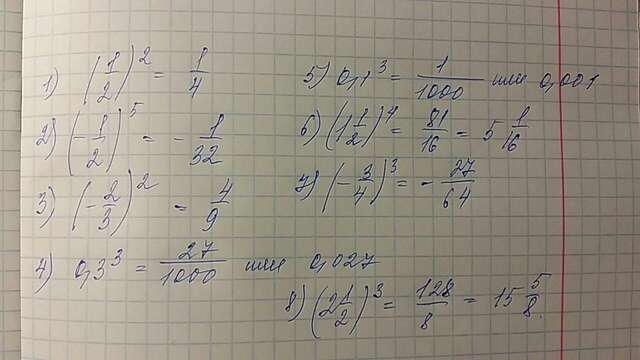 1) (1/2)² = 1/4
2) (-1/2)⁵ = -1/32
3) (-2/3)² = 4/9
4) 0,3³ = 27/1000 или 0,027
5) 0,1³ = 1/1000 или 0,001
6) (1 1/2)⁴ = 81/16 = 5 1/16
7) (-3/4)³ = -27/64
8) (2 1/2)³ = 128/8 = 15 5/8.